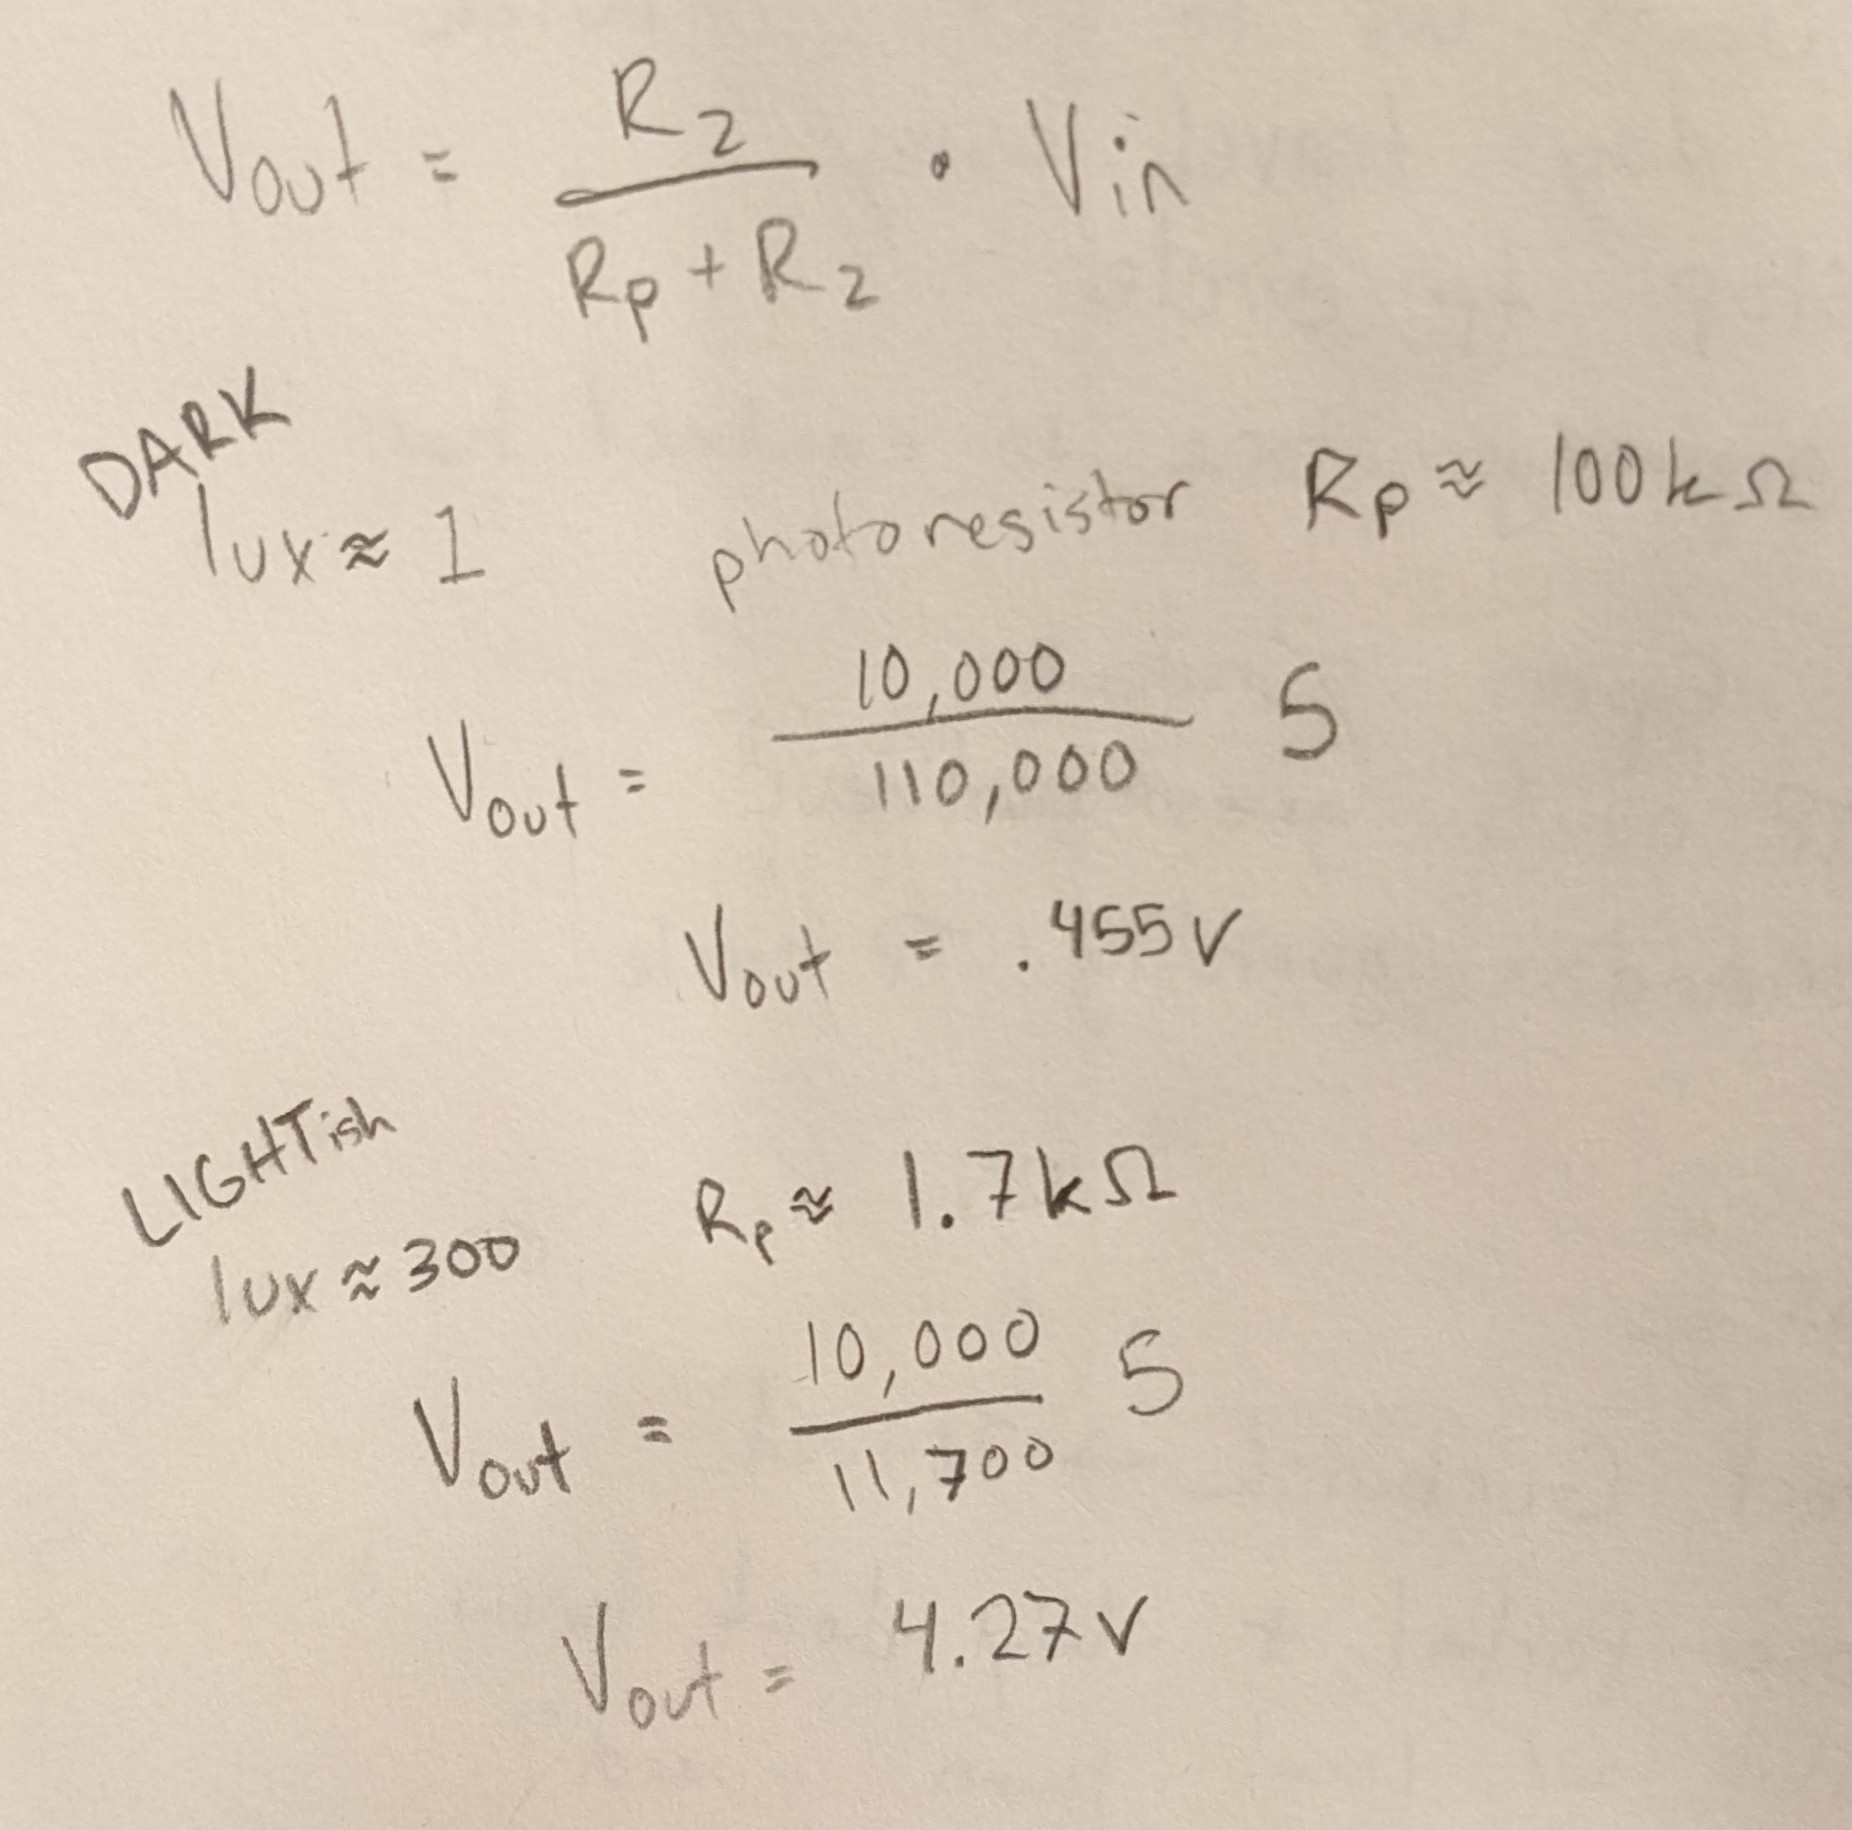 Vout = R2 / (Rp + R2) · Vin
DARK
lux ≈ 1 photoresistor Rp ≈ 100kΩ
Vout = 10,000 / 110,000 5
Vout = .455v
LIGHTish
lux ≈ 300 Rp ≈ 1.7kΩ
Vout = 10,000 / 11,700 5
Vout = 4.27v